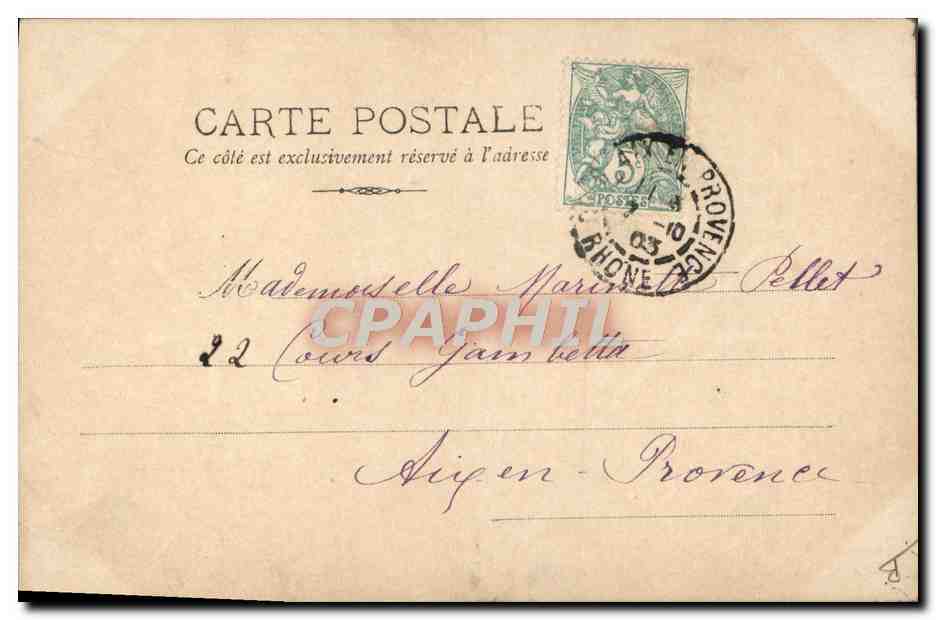 CARTE POSTALE
Ce côté est exclusivement réservé à l'adresse
5
POSTES
AIX EN PROVENCE
-10
03
RHONE
Mademoiselle Pellet
22 Cours Gambetta
CPAPHIL
Aix en - Provence